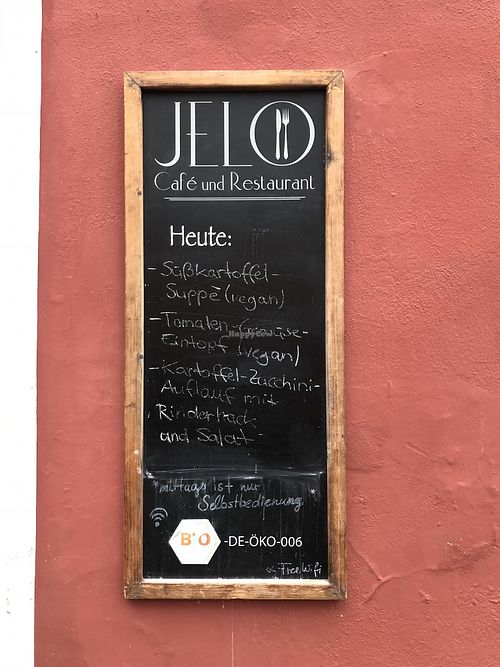 JELO
Café und Restaurant
Heute:
- Süßkartoffel-
Suppe (vegan)
- Tomaten-Gemüse-
Eintopf (vegan)
- Kartoffel-Zucchini-
Auflauf mit
Rinderhack
und Salat-
*mittags ist nur
Selbstbedienung *
BIO -DE-ÖKO-006
<< Free Wifi
HappyCow